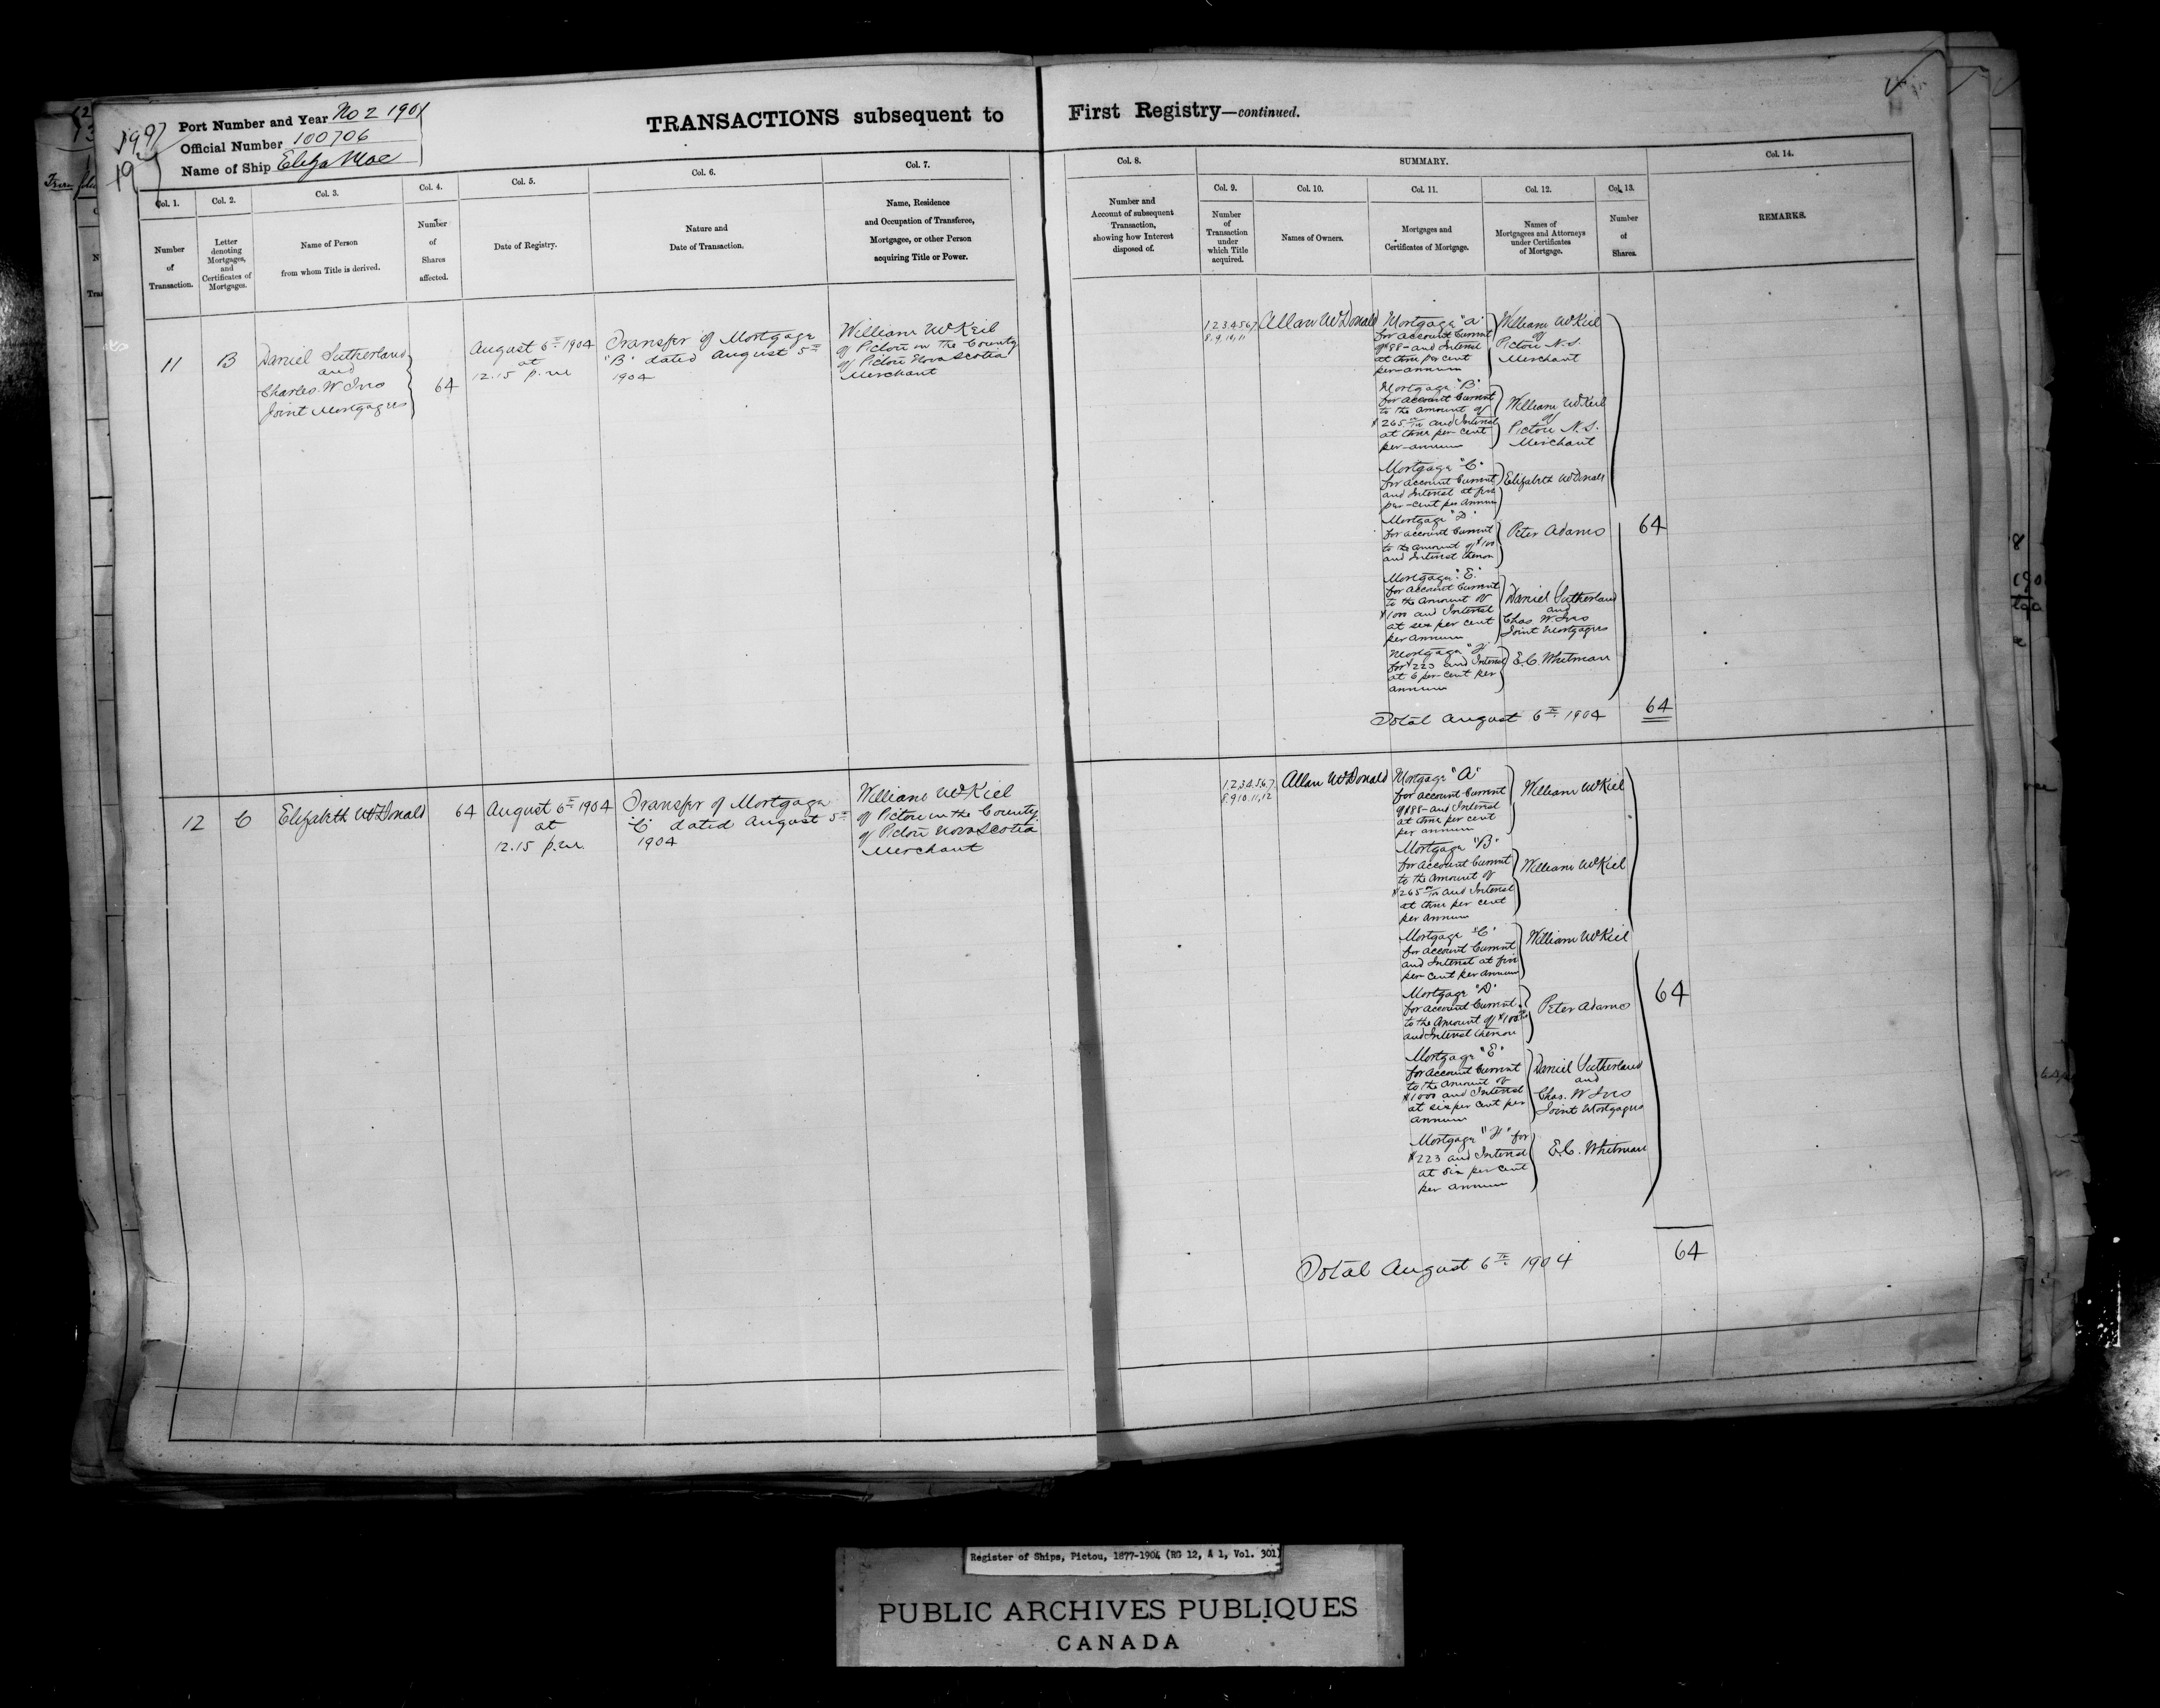 Port Number and Year No 2 1901
Official Number 100706
Name of Ship Eliza Mae
TRANSACTIONS subsequent to First Registry—continued.
Col. 1.
Number
of
Transaction.
Col. 2.
Letter
denoting
Mortgages,
and
Certificates of
Mortgages.
Col. 3.
Name of Person
from whom Title is derived.
Col. 4.
Number
of
Shares
affected.
Col. 5.
Date of Registry.
Col. 6.
Nature and
Date of Transaction.
Col. 7.
Name, Residence
and Occupation of Transferee,
Mortgagee, or other Person
acquiring Title or Power.
Col. 8.
Number and
Account of subsequent
Transaction,
showing how Interest
disposed of.
SUMMARY.
Col. 9.
Number
of
Transaction
under
which Title
acquired.
Col. 10.
Names of Owners.
Col. 11.
Mortgages and
Certificates of Mortgage.
Col. 12.
Names of
Mortgagees and Attorneys
under Certificates
of Mortgage.
Col. 13.
Number
of
Shares.
Col. 14.
REMARKS.
11
B
Daniel Sutherland
and
Charles W Ives
Joint Mortgagees
64
August 6th 1904
at
12.15 p.m
Transfer of Mortgage
"B" dated August 5th
1904
William McKeil
of Pictou in the County
of Pictou Nova Scotia
Merchant
1.2.3.4.5.6.7
8.9.10.11
Allan McDonald
Mortgage "A"
for account Current
of $88- and Interest
at three per cent
per annum
William McKiel
of
Pictou N.S.
Merchant
Mortgage "B"
for account Current
to the amount of
and Interest
at three per cent
per annum
William McKiel
of
Pictou N.S.
Merchant
Mortgage "C"
for account Current
and Interest at five
per-cent per annum
Elizabeth McDonald
Mortgage "D"
for account Current
to the amount of $100
and Interest thereon
Peter Adams
Mortgage "E"
for account Current
to the amount of
$1000 and Interest
at six per cent
per annum
Daniel Sutherland
and
Chas W. Ives
Joint Mortgagees
Mortgage "F"
for $223 and Interest
at 6 per-cent per
annum
E.C. Whitman
64
Total August 6th 1904
64
12
C
Elizabeth McDonald
64
August 6th 1904
at
12.15 p.m.
Transfer of Mortgage
"C" dated August 5th
1904
William McKiel
of Pictou in the County
of Pictou Nova Scotia
Merchant
1.2.3.4.5.6.7.
8.9.10.11.12
Allan McDonald
Mortgage "A"
for account Current
of $88- and Interest
at three per cent
per annum
William McKiel
Mortgage "B"
for account Current
to the amount of
and Interest
at three per cent
per annum
William McKiel
Mortgage "C"
for account Current
and Interest at five
per cent per annum
William McKiel
Mortgage "D"
for account Current
to the amount of $100
and Interest thereon
Peter Adams
Mortgage "E"
for account Current
to the amount of
$1000 and Interest
at six per cent per
annum
Daniel Sutherland
and
Chas. W Ives
Joint Mortgagees
Mortgage "F" for
$223 and Interest
at six per cent
per annum
E.C. Whitman
64
Total August 6th 1904
64
Register of Ships, Pictou, 1877-1904 (RG 12, A 1, Vol. 301)
PUBLIC ARCHIVES PUBLIQUES
CANADA